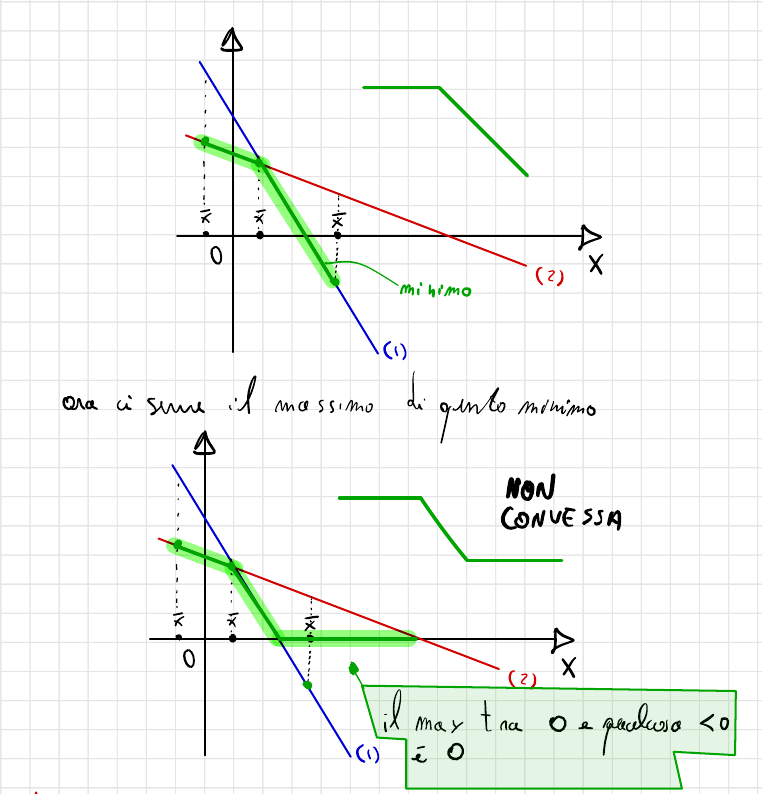 x̄ x̄ x̄
0
X
(2)
minimo
(1)
ora ci serve il massimo di questo minimo
NON
CONVESSA
x̄ x̄ x̄
0
X
(2)
il max tra 0 e qualcosa <0
è 0
(1)